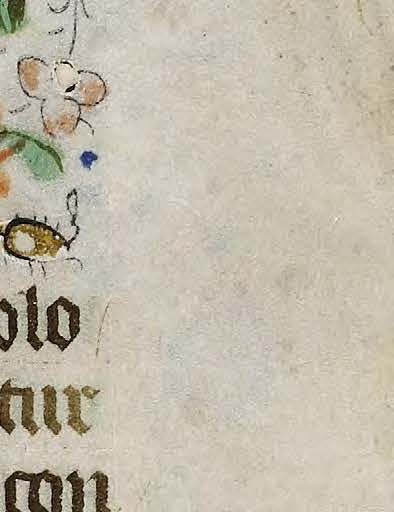 olo
tur
con